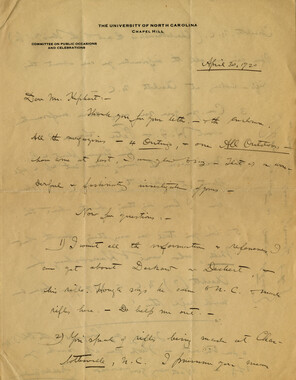 THE UNIVERSITY OF NORTH CAROLINA
CHAPEL HILL
COMMITTEE ON PUBLIC OCCASIONS
AND CELEBRATIONS
April 30, 192
Dear Mr. Kephart:-
Thank you for your letter – with
All the magazines – 4 Outings, – one All Outdoors –
at last, I – That is a
fascinating investigation of yours –
Now for questions: –
1) I want all the information & references I
can get about Deckard or Deckert,
this rifle; says he came to N. C. & made
rifles here. – Do help me out. –
2) You speak of rifles being made at
, N. C. I presume you mean